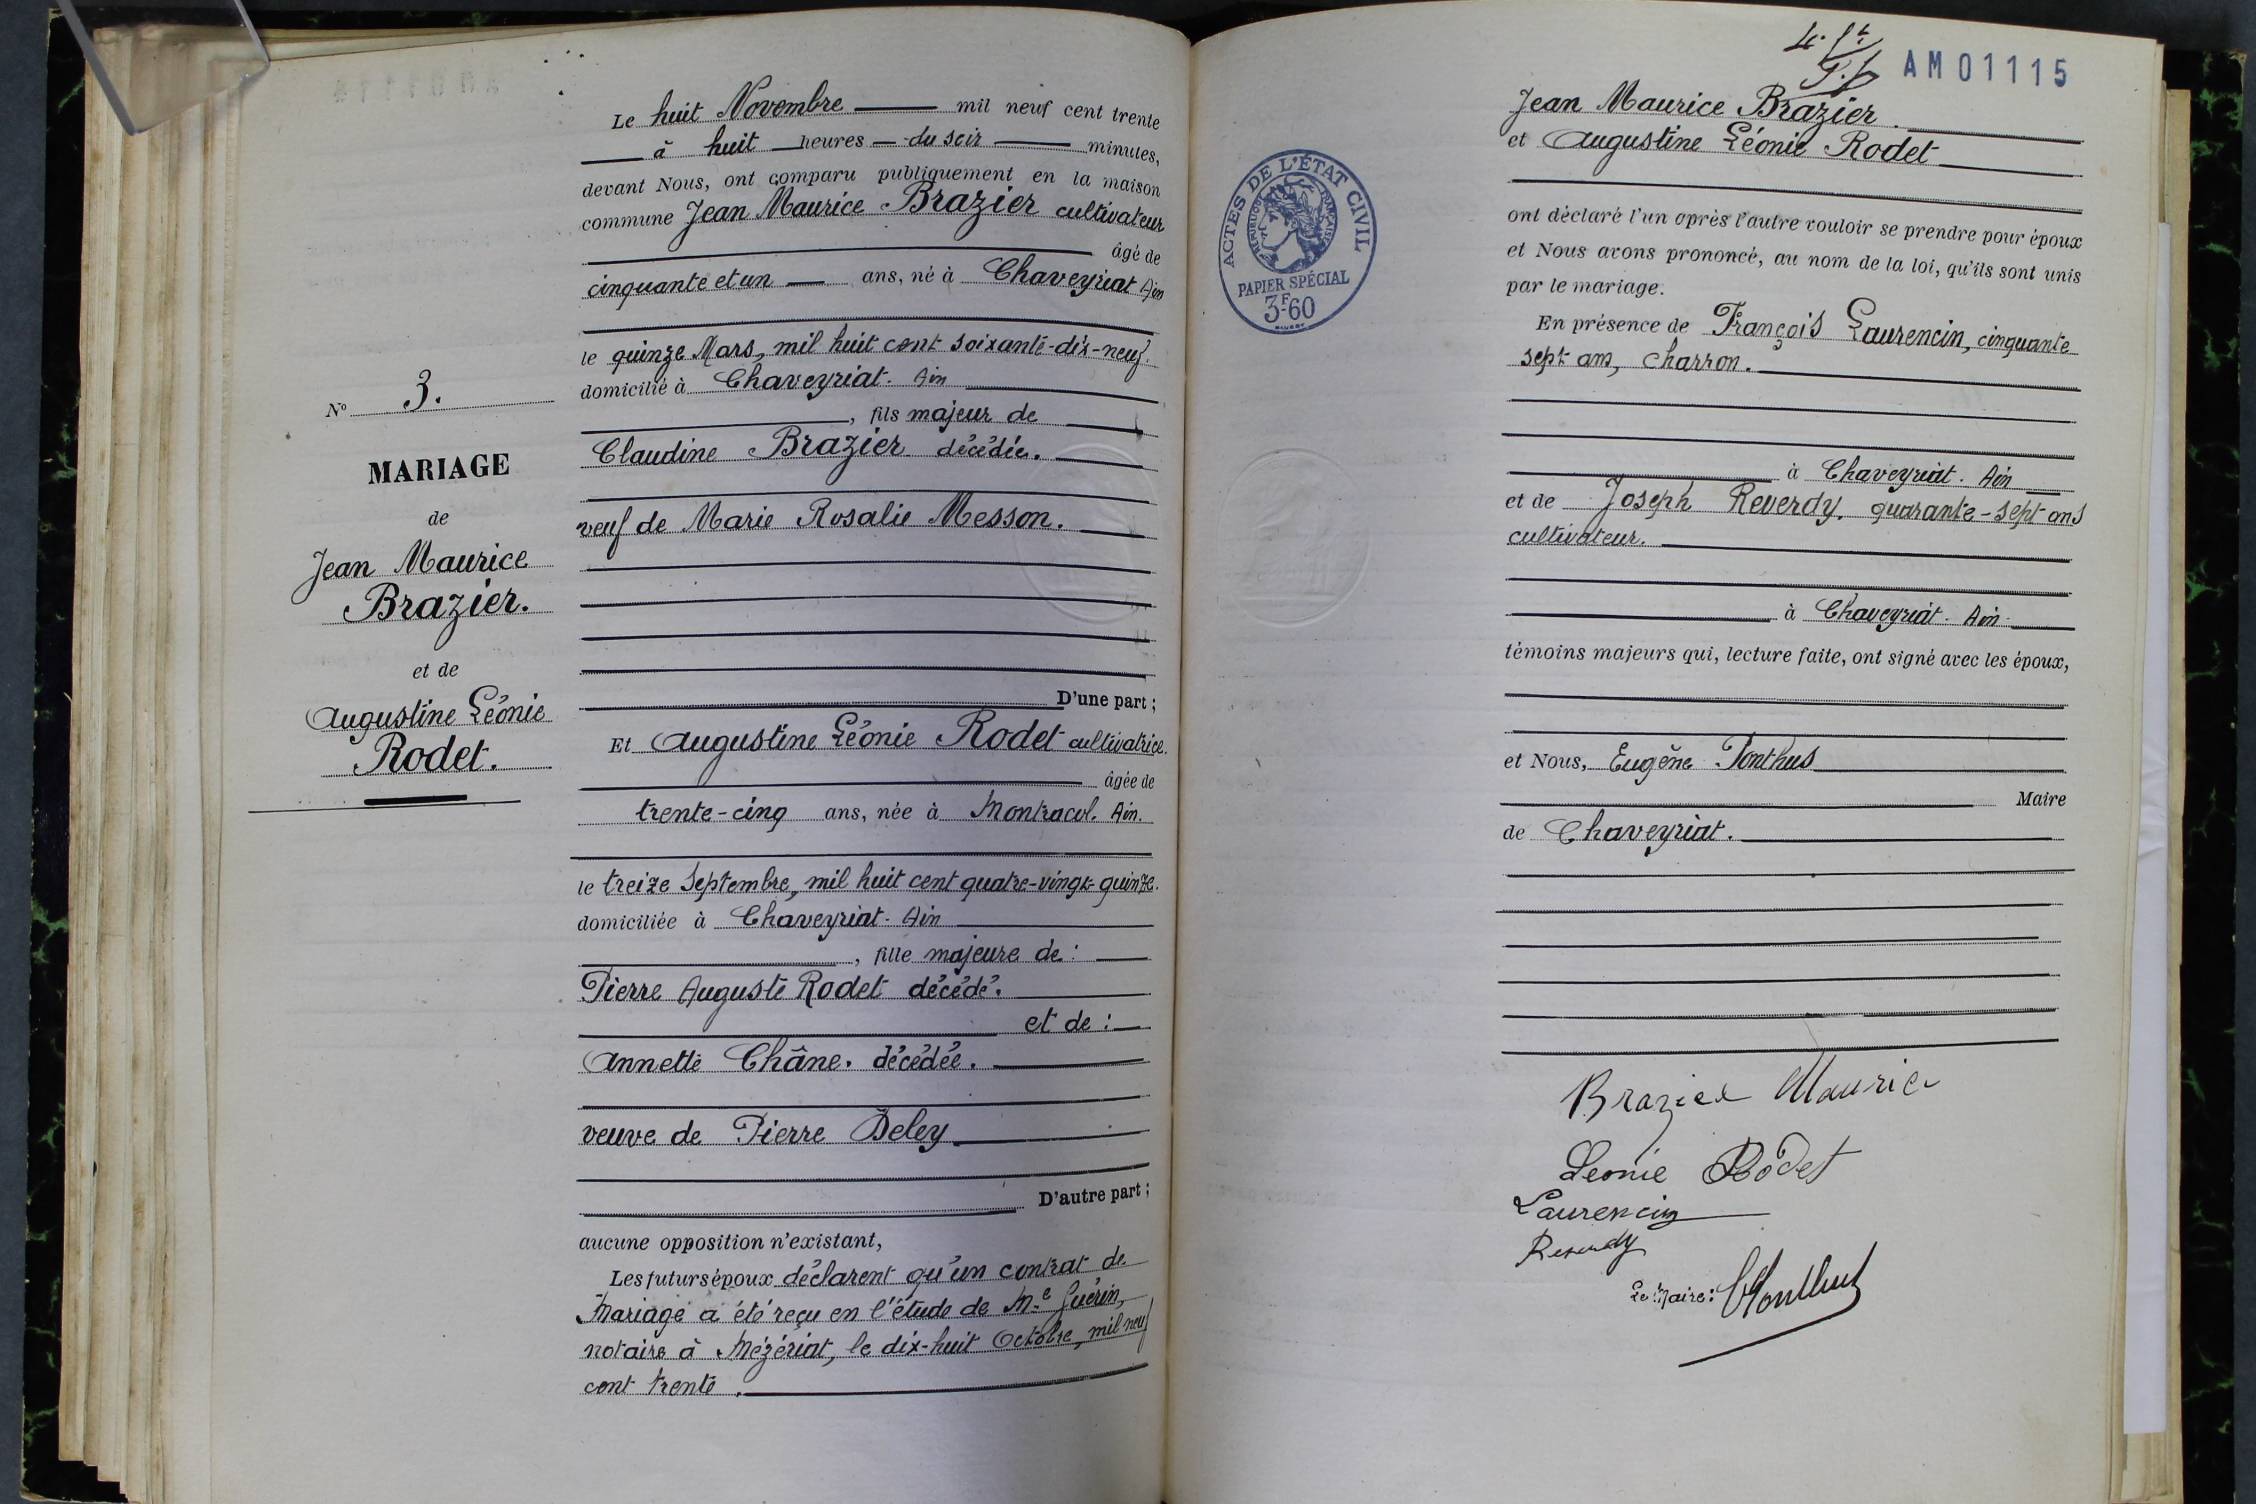 Le huit Novembre mil neuf cent trente
à huit heures du soir minutes,
devant Nous, ont comparu publiquement en la maison
commune Jean Maurice Brazier cultivateur
âgé de
cinquante et un ans, né à Chaveyriat Ain
le quinze Mars, mil huit cent soixante-dix-neuf.
domicilié à Chaveyriat. Ain
, fils majeur de
Claudine Brazier décédée.
veuf de Marie Rosalie Messon.
D'une part ;
Et Augustine Léonie Rodet cultivatrice.
âgée de
trente-cinq ans, née à Montracol. Ain.
le treize Septembre, mil huit cent quatre-vingt-quinze.
domiciliée à Chaveyriat. Ain
, fille majeure de :
Pierre Auguste Rodet décédé.
et de :
Annette Châne. décédée.
veuve de Pierre Deley
D'autre part ;
aucune opposition n'existant,
Les futurs époux déclarent qu'un contrat de
Mariage a été reçu en l'étude de Me Guérin,
notaire à Mézériat, le dix-huit Octobre, mil neuf
cent trente.
No 3.
MARIAGE
de
Jean Maurice
Brazier.
et de
Augustine Léonie
Rodet.
AM01115
Jean Maurice Brazier
et Augustine Léonie Rodet
ACTES DE L'ÉTAT CIVIL
RÉPUBLIQUE FRANÇAISE
PAPIER SPÉCIAL
3F60
ont déclaré l'un après l'autre vouloir se prendre pour époux
et Nous avons prononcé, au nom de la loi, qu'ils sont unis
par le mariage.
En présence de François Laurencin, cinquante
sept ans, charron.
à Chaveyriat. Ain
et de Joseph Reverdy. quarante-sept ans
cultivateur.
à Chaveyriat. Ain.
témoins majeurs qui, lecture faite, ont signé avec les époux,
et Nous, Eugène Ponthus
Maire
de Chaveyriat.
Brazier Maurice
Leonie Rodet
Laurencin
Reverdy
Le Maire : Ponthus